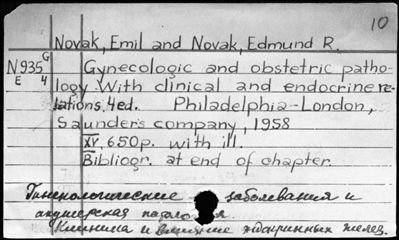 10
Novak, Emil and Novak, Edmund R.
N935 G Gynecologic and obstetric patho-
E 4 logy With clinical and endocrine re-
lations. 4ed. Philadelphia-London,
Saunders company, 1958
XV, 650p. with ill.
Bibliogr. at end of chapter
Гинекологические заболевания и
акушерская патология
Клиника и эндокринных желез.